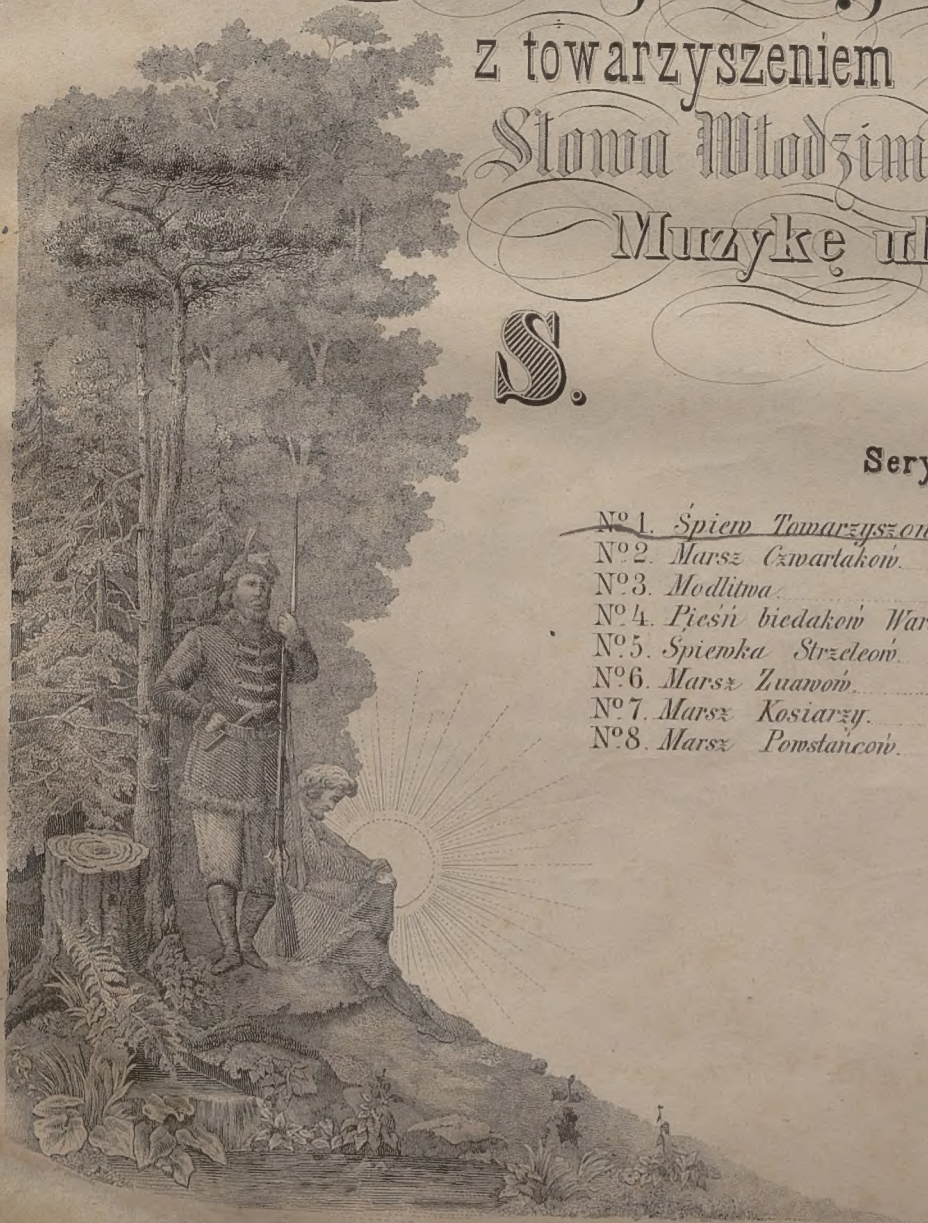 z towarzyszeniem
Słowa Włodzim
Muzykę uł
S.
Sery
Nº 1. Śpiew Towarzyszon
Nº 2. Marsz Czwartaków.
Nº 3. Modlitwa.
Nº 4. Pieśń biedaków War
Nº 5. Śpiewka Strzelców.
Nº 6. Marsz Zuawów.
Nº 7. Marsz Kosiarzy.
Nº 8. Marsz Powstańców.